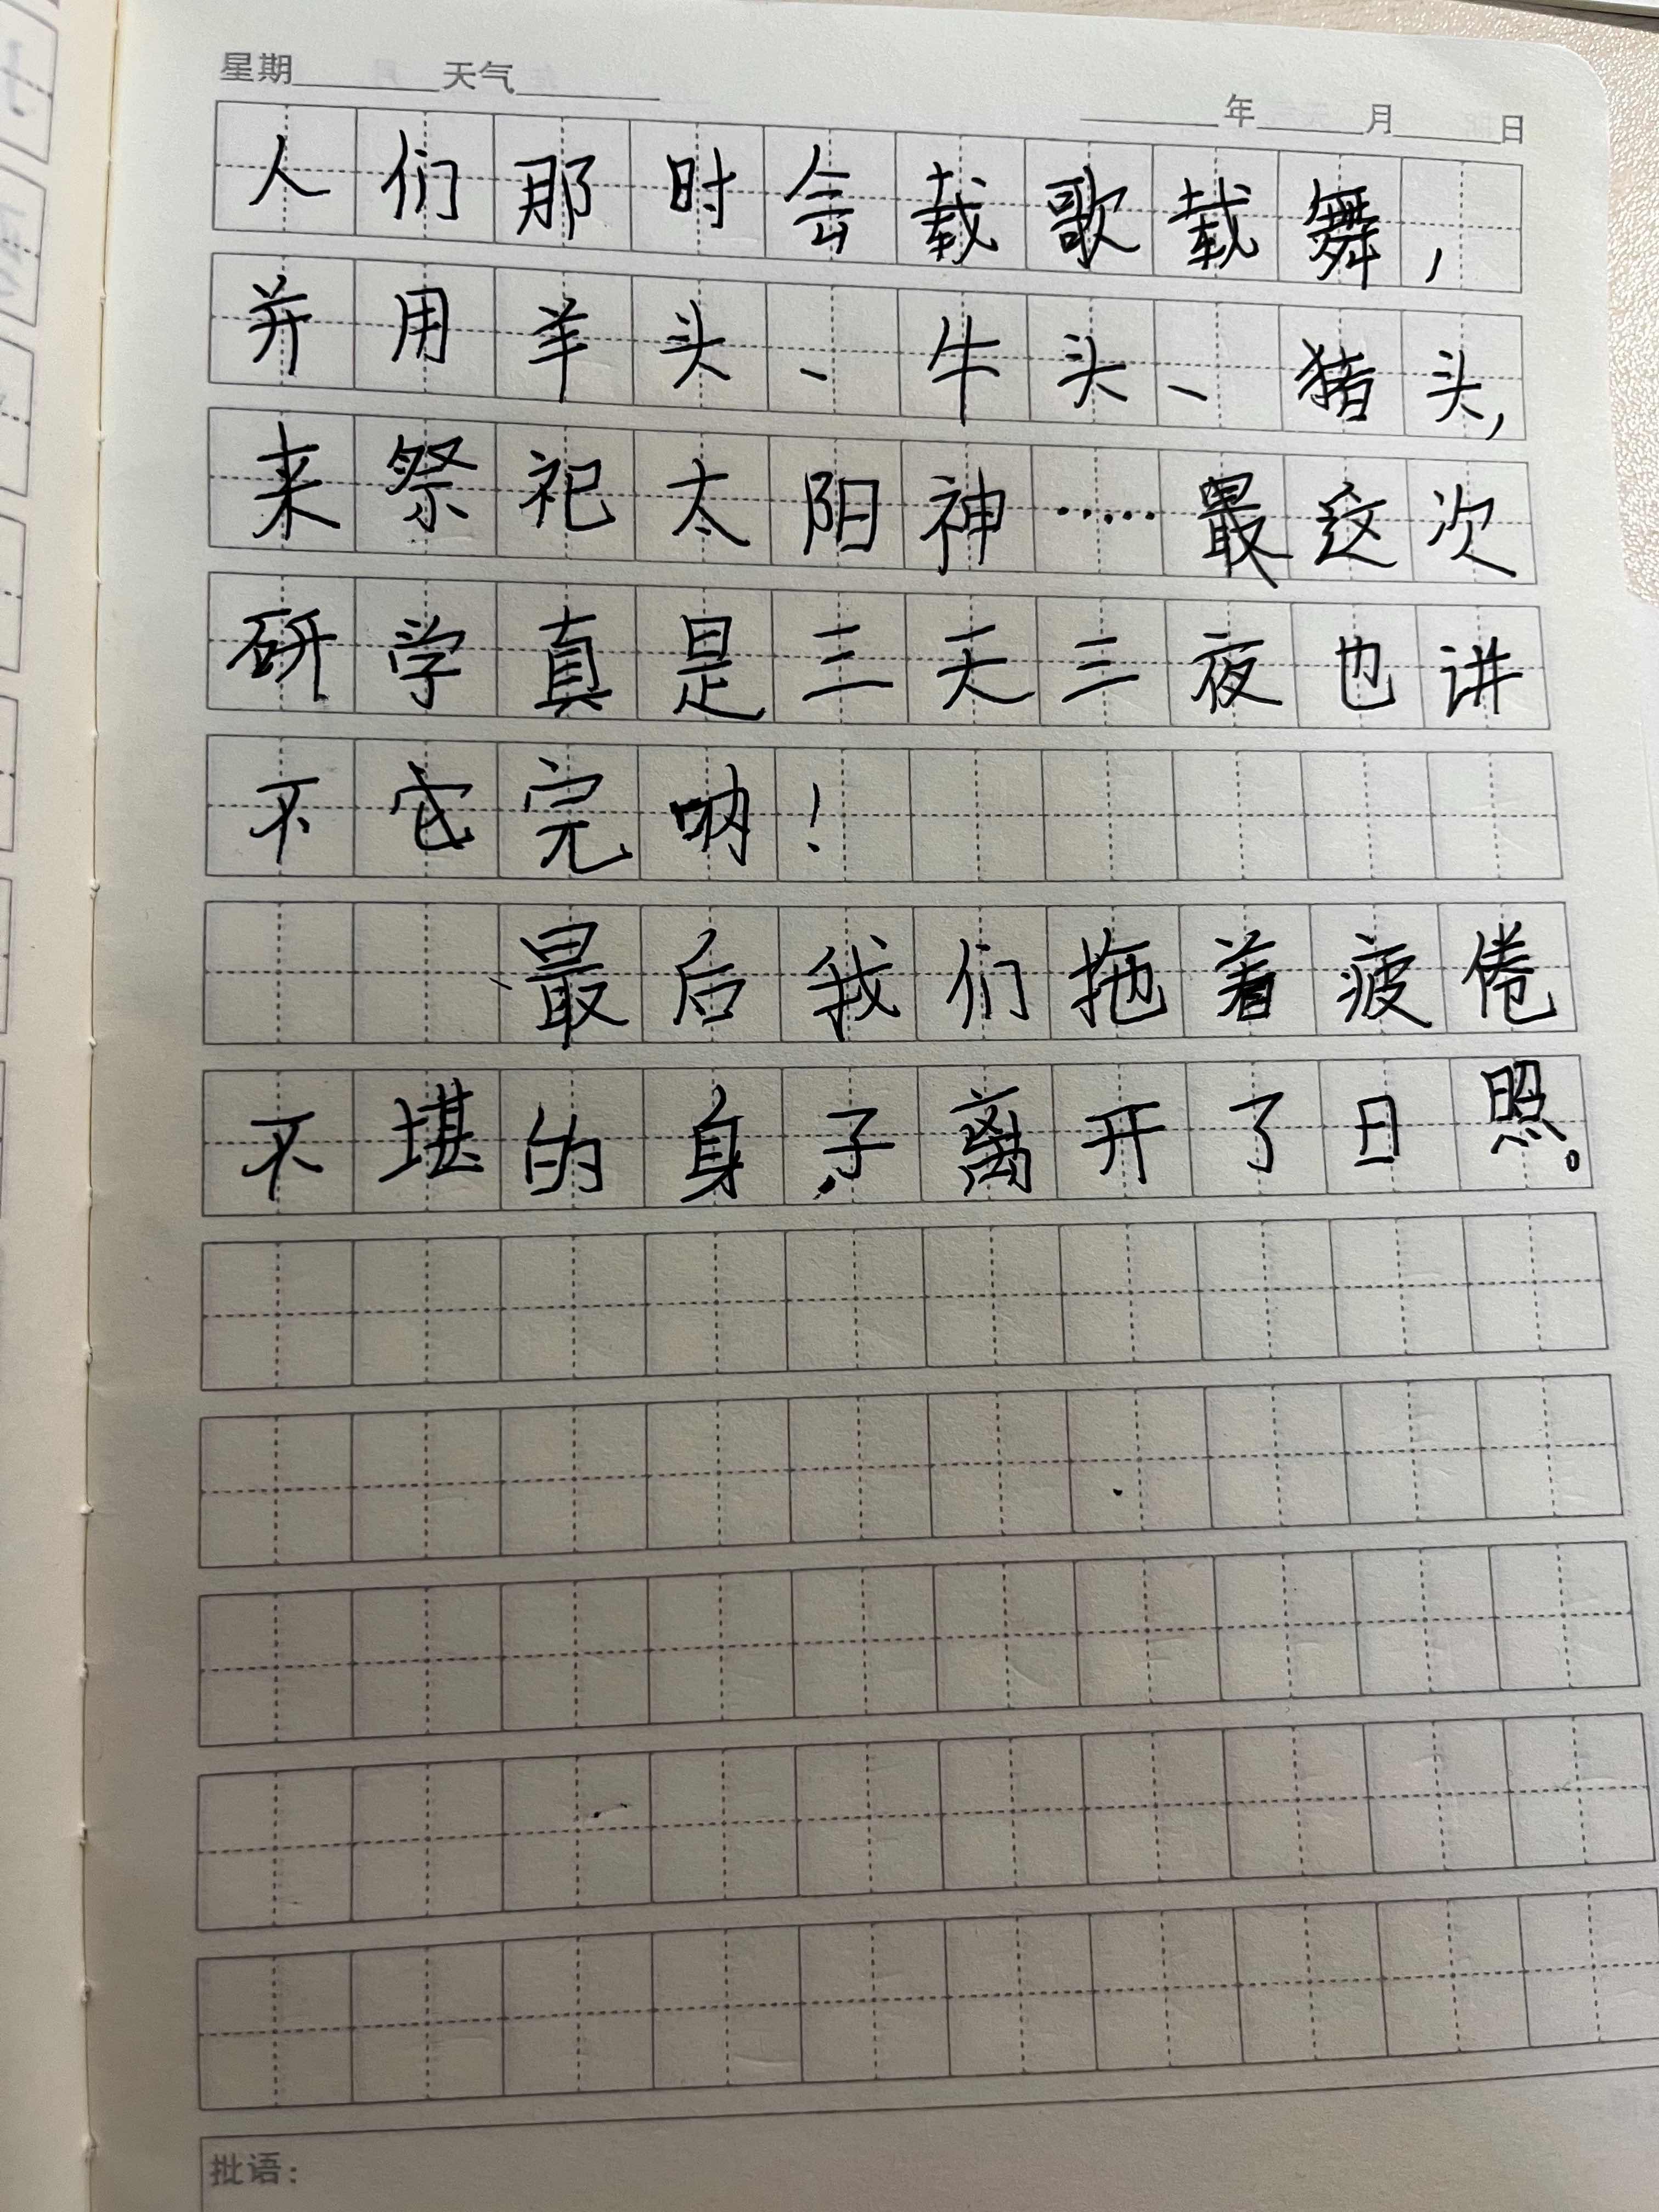 星期 天气
年 月 日
人们那时会载歌载舞，
并用羊头、牛头、猪头，
来祭祀太阳神……最这次
研学真是三天三夜也讲
不它完呐！
最后我们拖着疲倦
不堪的身子离开了日照。
批语：